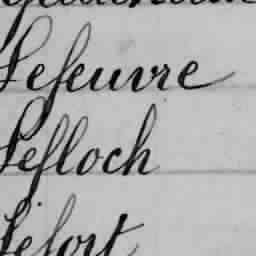 Lefeuvre
Lefloch
Lefort